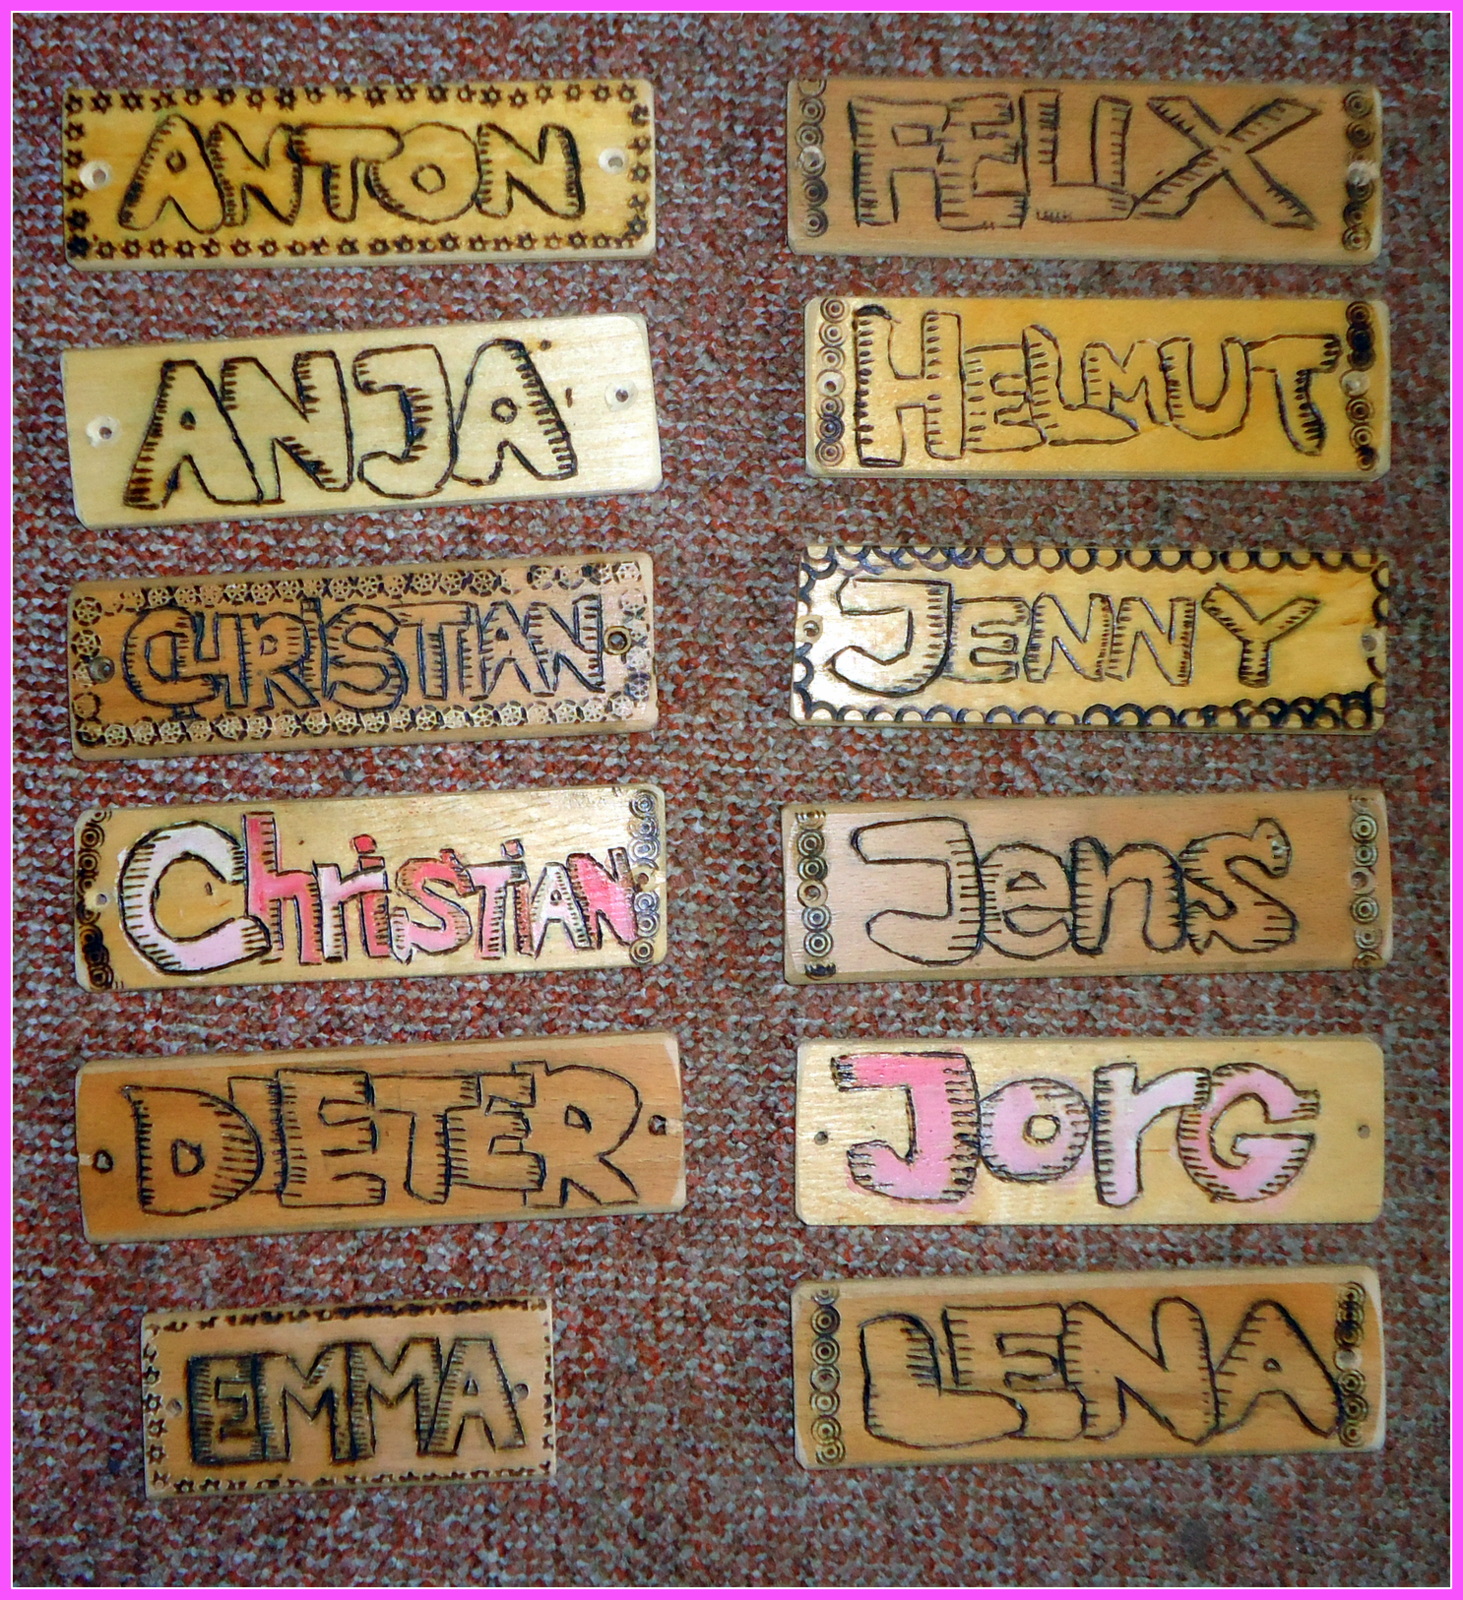 ANTON
ANJA
CHRiSTIAN
ChriSTiAN
DIETER
EMMA
FELIX
HELMUT
JENNY
Jens
JorG
LENA